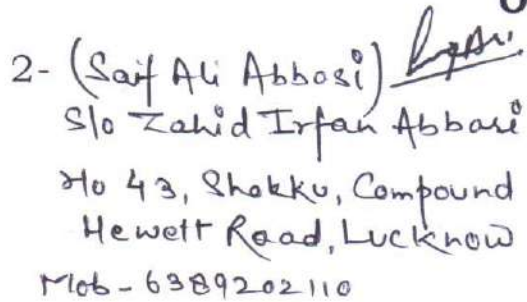 2- (Saif Ali Abbasi)
S/o Zahid Irfan Abbasi
H/o 43, Shokku, Compound
Hewett Road, Lucknow
Mob - 6389202110